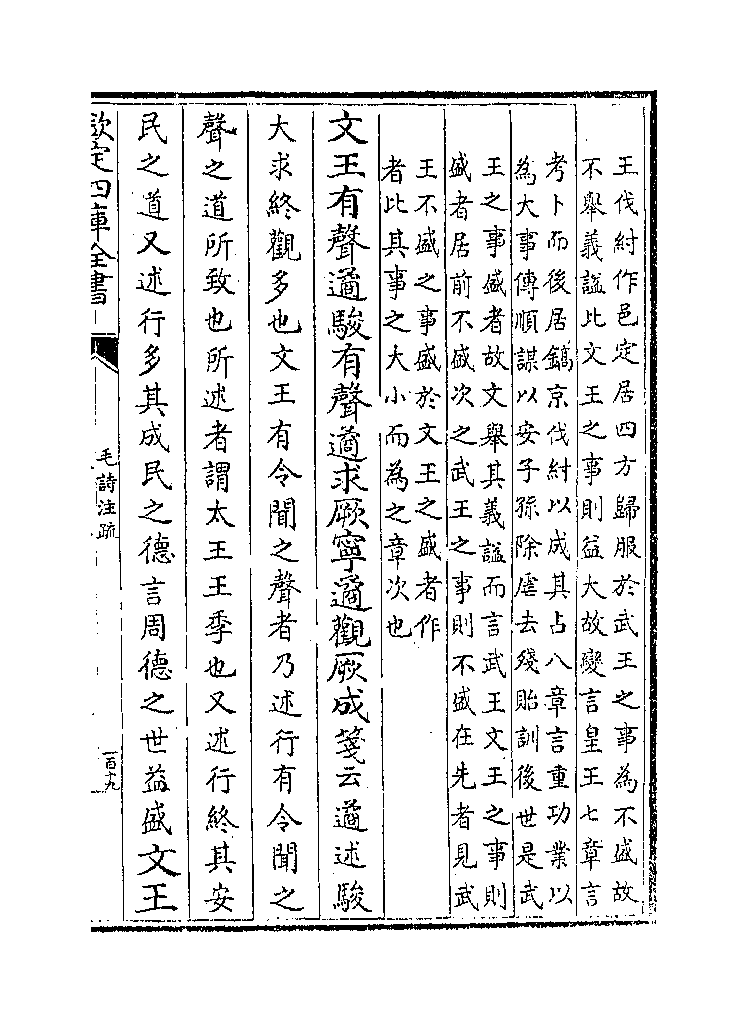 王伐紂作邑定居四方歸服於武王之事為不盛故
不舉義謚比文王之事則益大故變言皇王七章言
考卜而後居鎬京伐紂以成其占八章言重功業以
為大事傳順謀以安子孫除虐去殘貽訓後世是武
王之事盛者故文舉其義謚而言武王文王之事則
盛者居前不盛次之武王之事則不盛在先者見武
王不盛之事盛於文王之盛者作
者比其事之大小而為之章次也
文王有聲遹駿有聲遹求厥寧遹觀厥成箋云遹述駿
大求終觀多也文王有令聞之聲者乃述行有令聞之
聲之道所致也所述者謂太王王季也又述行終其安
民之道又述行多其成民之德言周德之世益盛文王
欽定四庫全書
毛詩注疏
一百十九